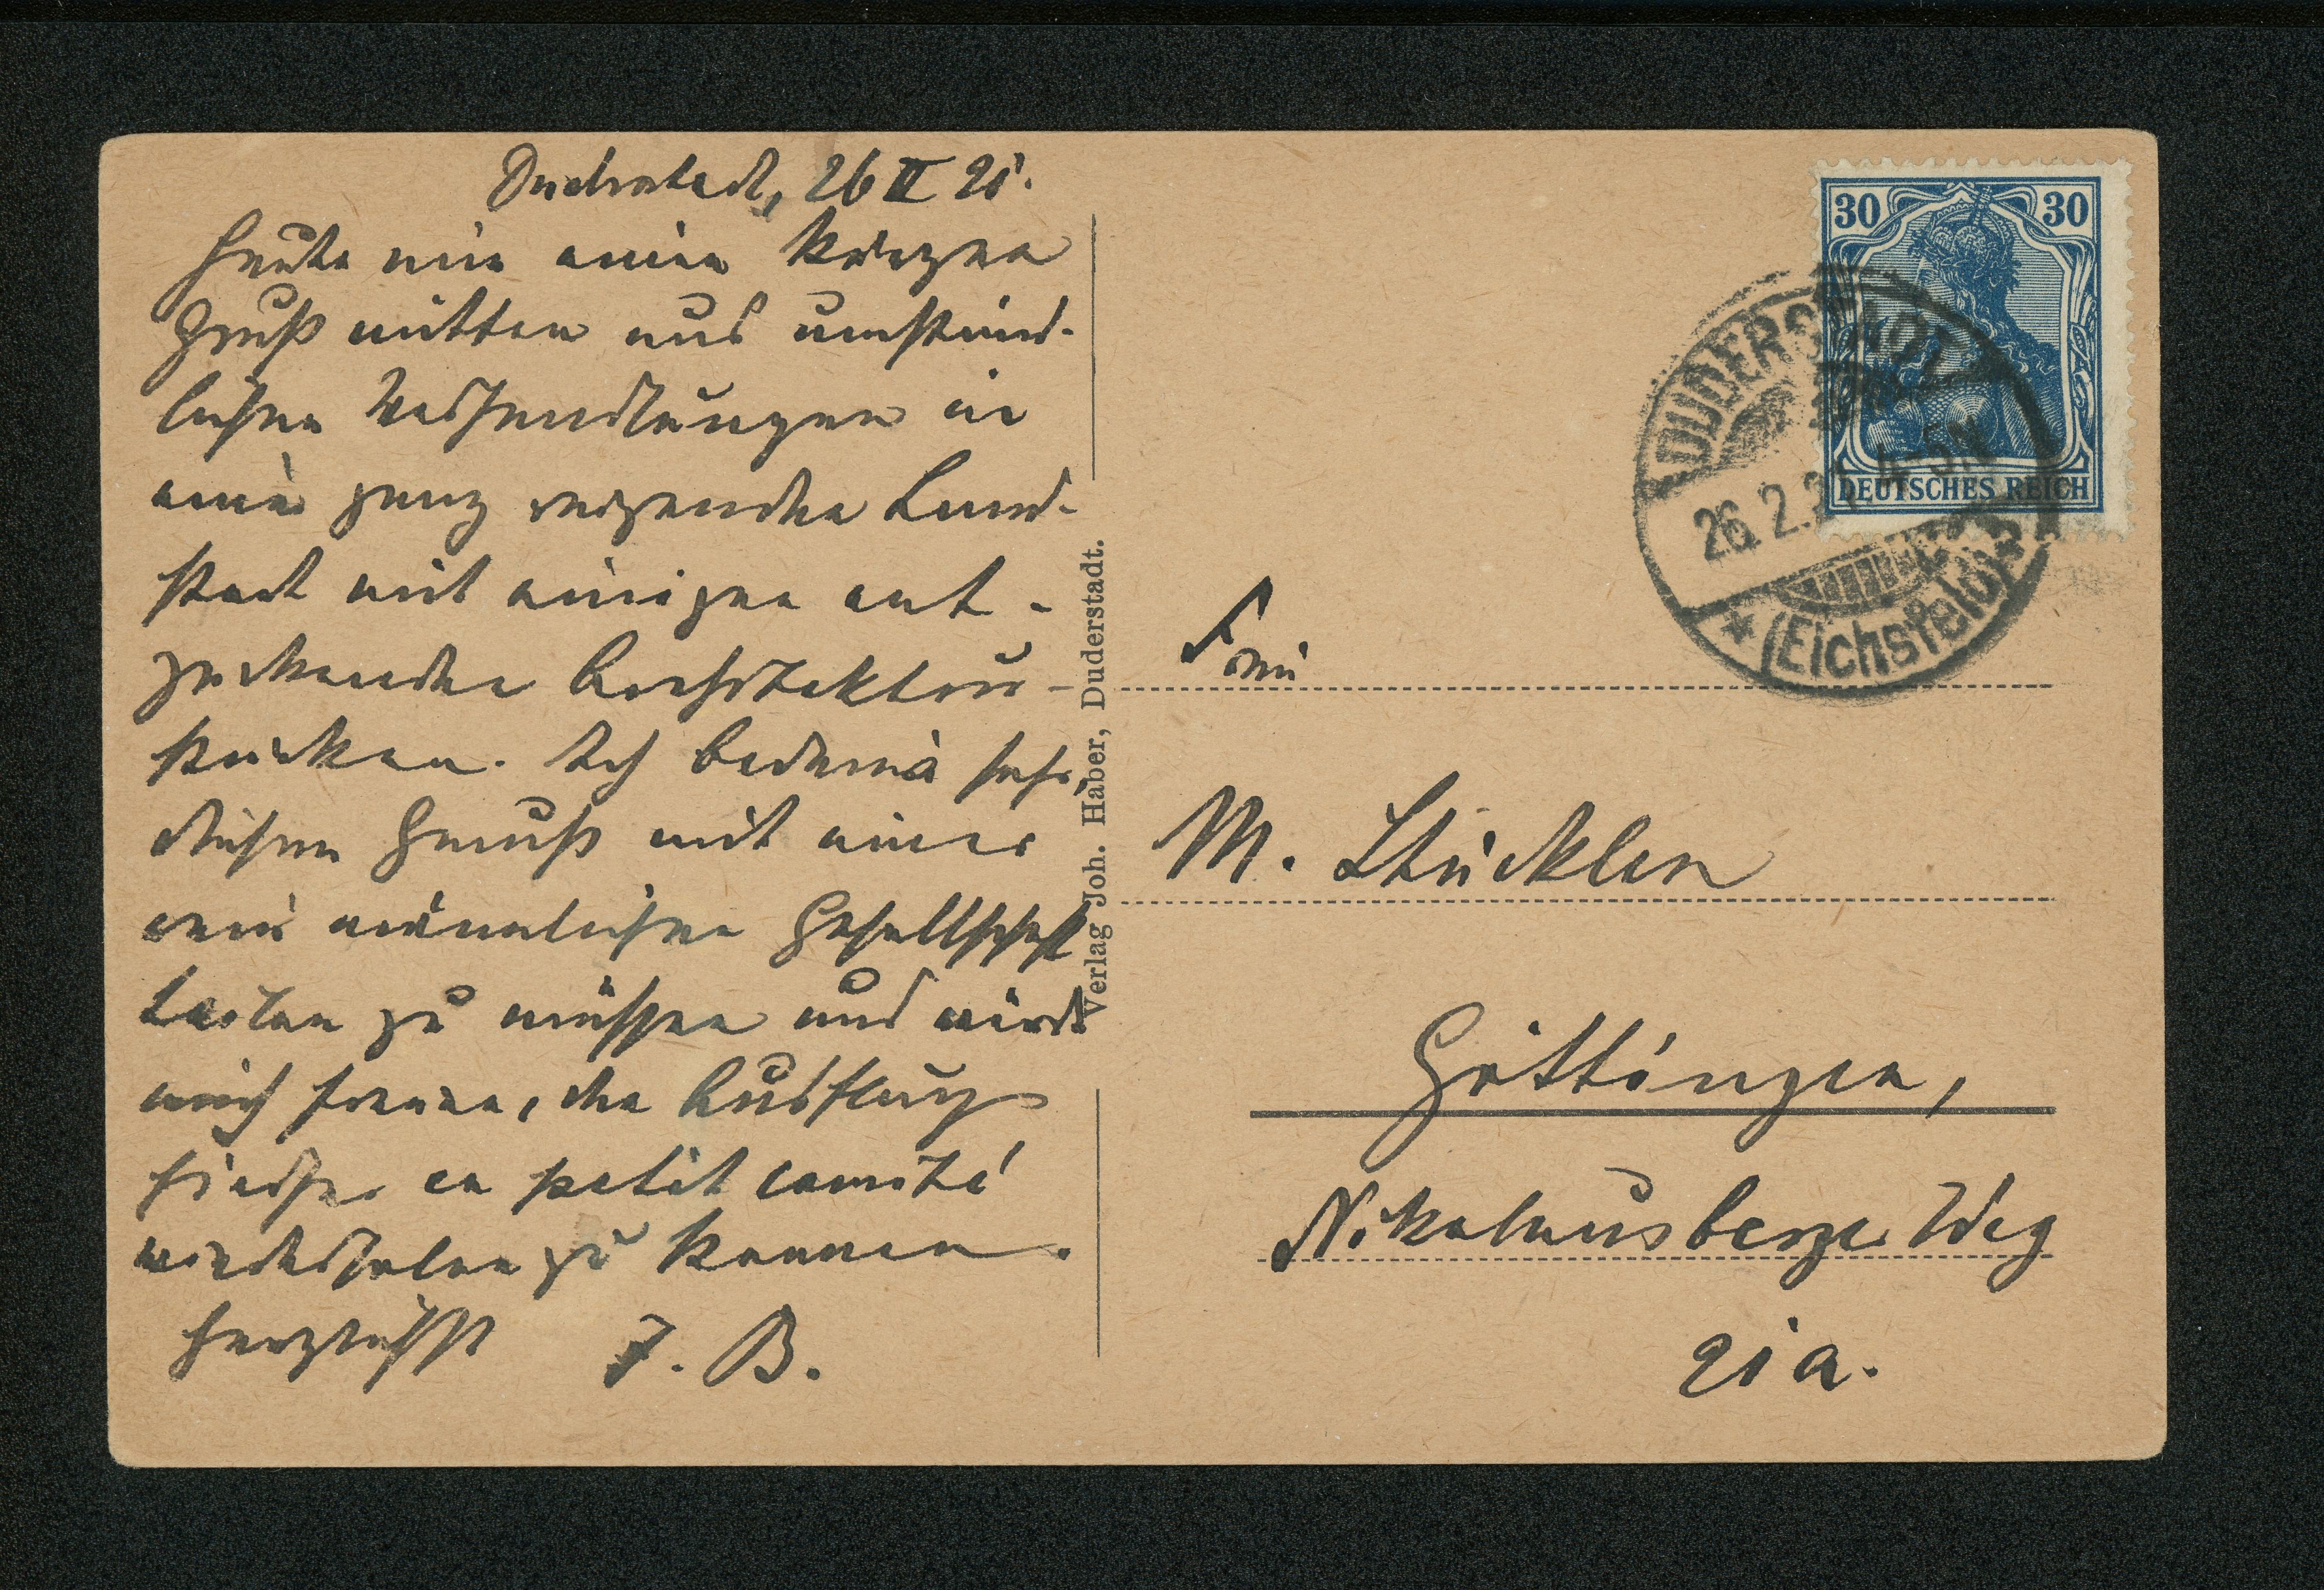 Duderstadt, 26 II 21.
Heute nur einen kurzen
Gruß mitten aus umständ-
lichen Verhandlungen in
einer ganz reizenden Land-
stadt mit einigen ent-
zückenden Architektur-
stücken. Ich bedaure sehr,
diesen Genuß mit einer
rein männlichen Gesellschaft
teilen zu müssen und würde
mich freuen, den Ausflug
hierher en petit comité
wiederholen zu können.
Herzlichst J. B.
Verlag Joh. Haber, Duderstadt.
30 30
DEUTSCHES REICH
DUDERSTADT
26.2.21. 4-5N
* (Eichsfeld)
Frau
M. Stücklen
Göttingen,
Nikolausberger Weg
21 a.